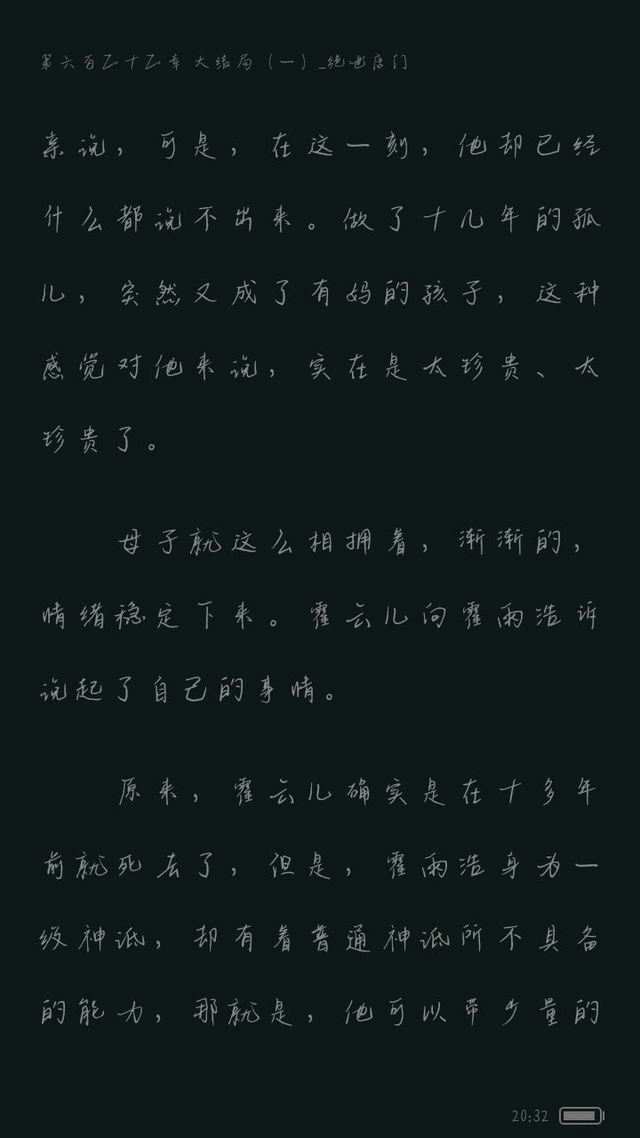 第六百二十二章 大结局（一）_绝世唐门
亲说，可是，在这一刻，他却已经
什么都说不出来。做了十几年的孤
儿，突然又成了有妈的孩子，这种
感觉对他来说，实在是太珍贵、太
珍贵了。
母子就这么相拥着，渐渐的，
情绪稳定下来。霍云儿向霍雨浩诉
说起了自己的事情。
原来，霍云儿确实是在十多年
前就死去了，但是，霍雨浩身为一
级神祇，却有着普通神祇所不具备
的能力，那就是，他可以带少量的
20:32